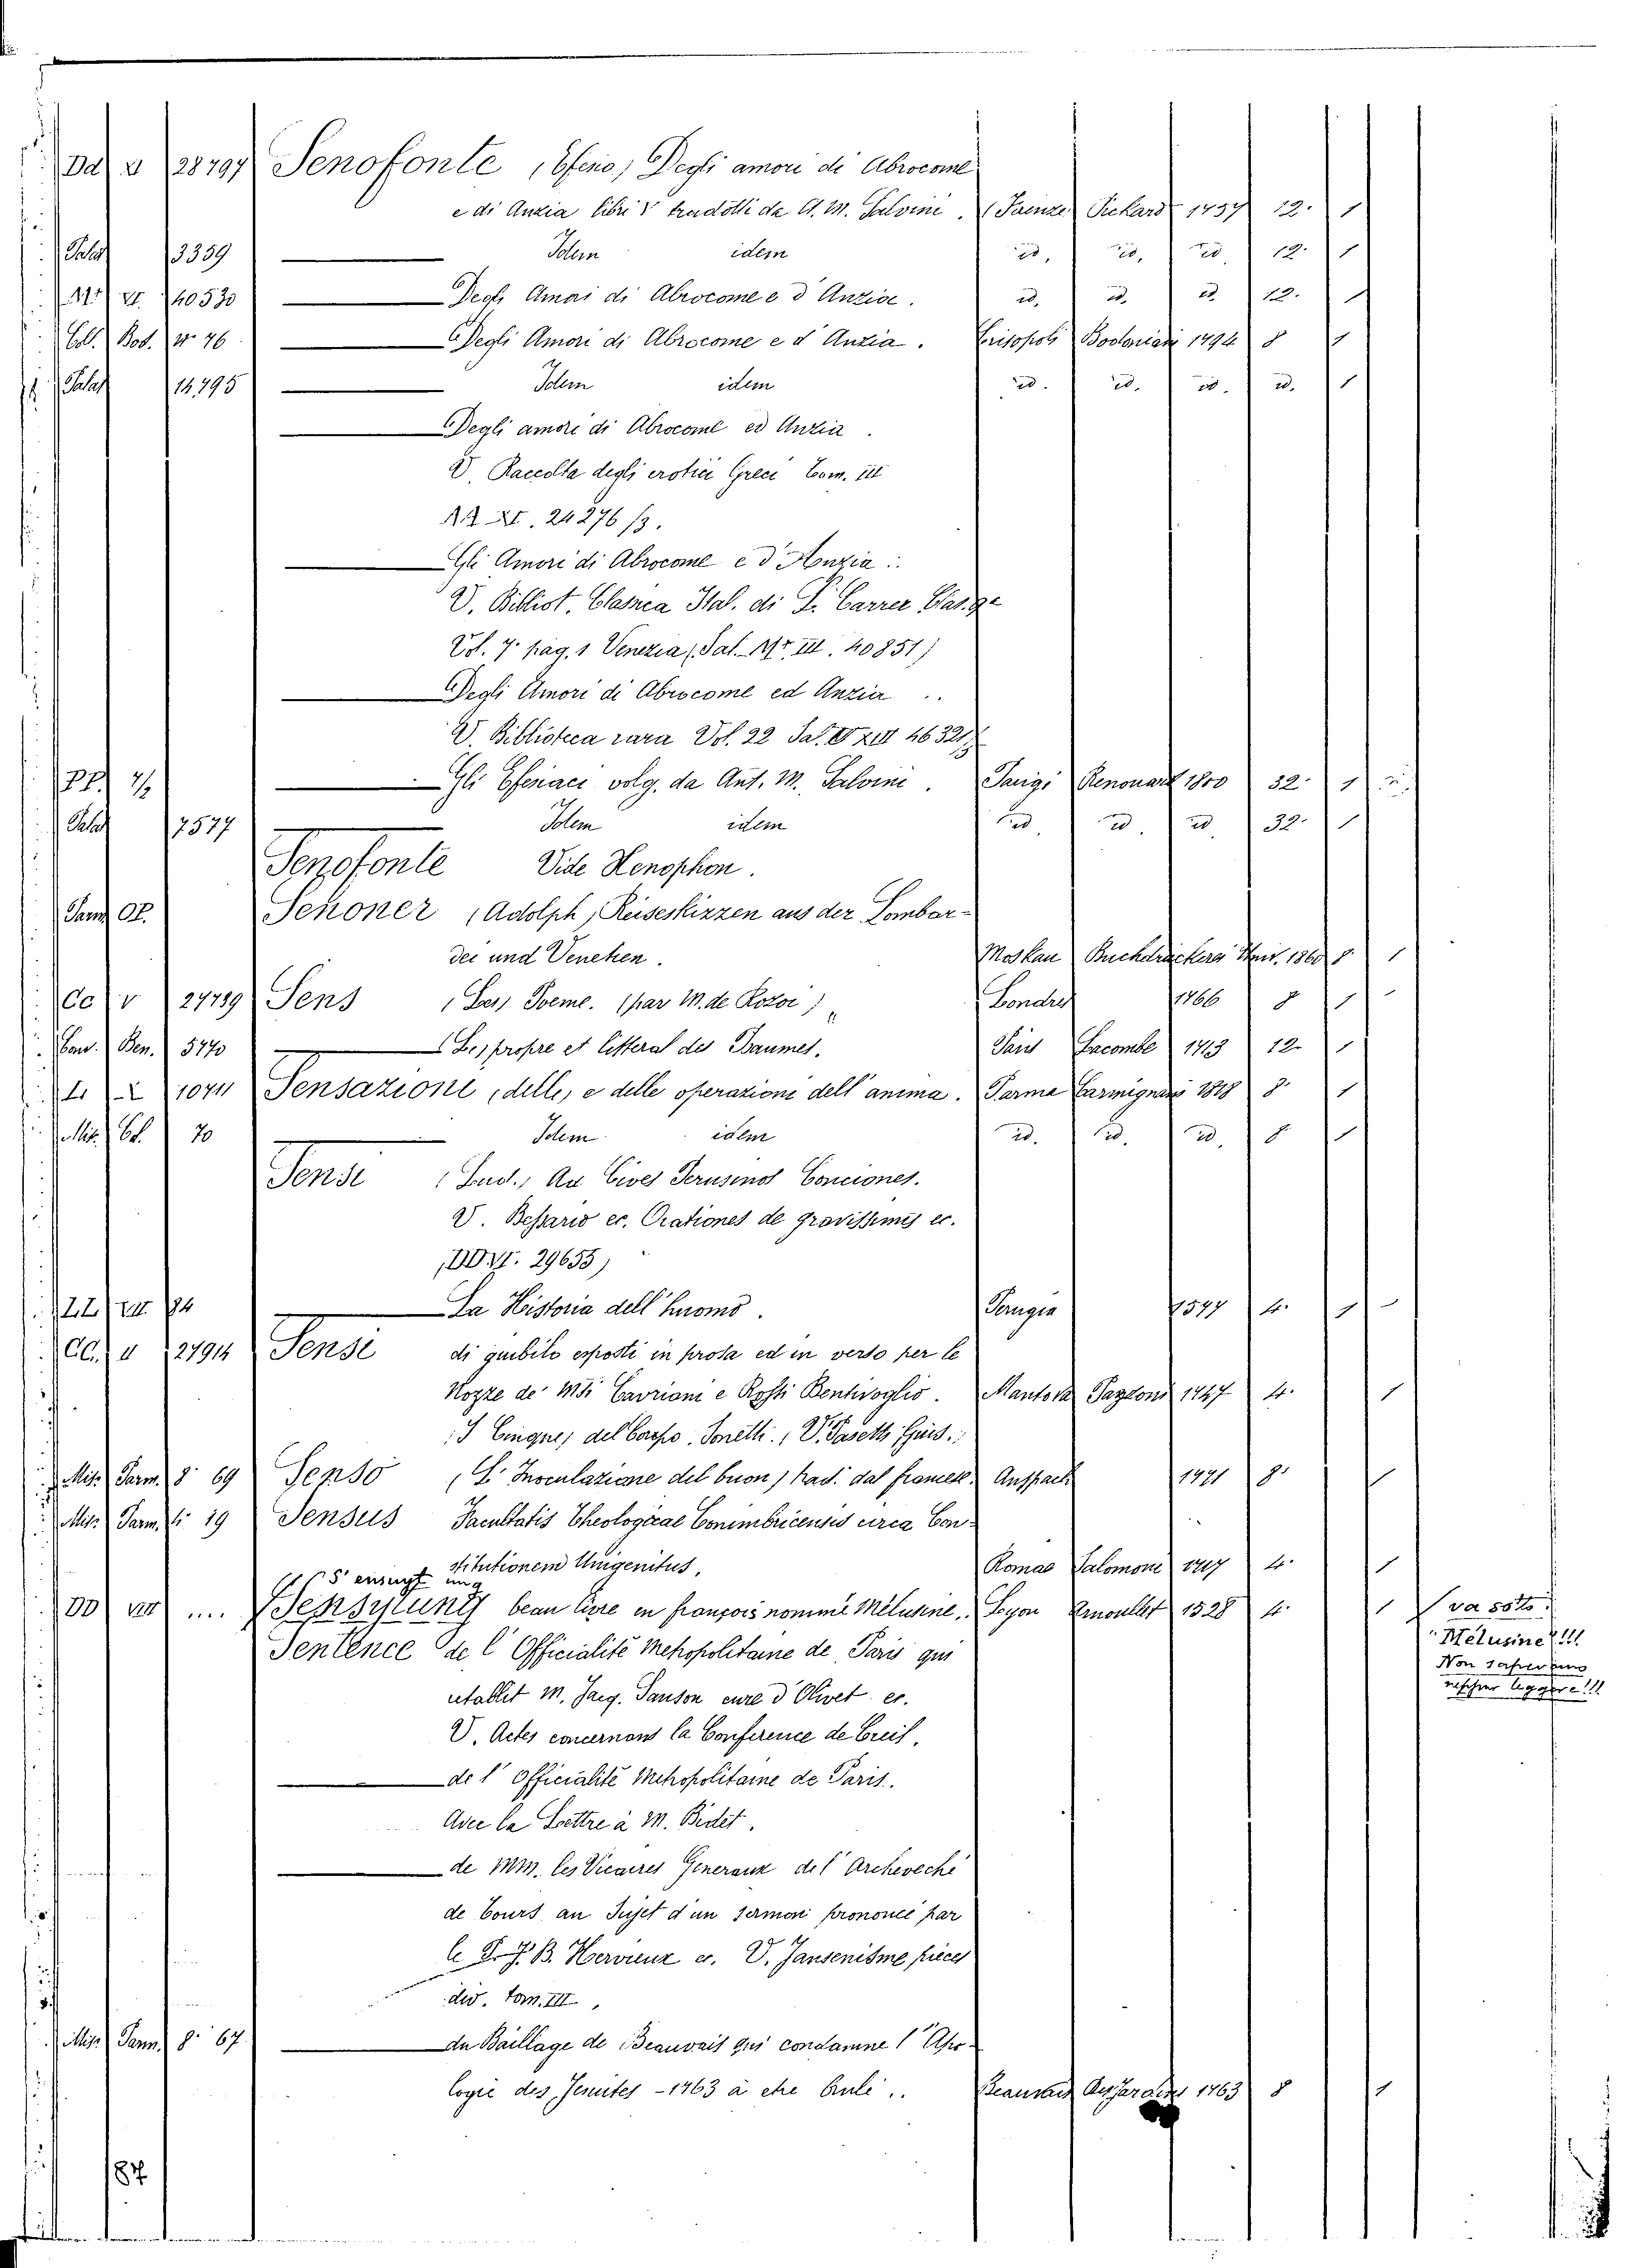 Dd V 28797 Senofonte (Efesio) Degli amori di Abrocome
e di Anzia libri V tradotti da A. M. Salvini. Firenze Pickard 1757 12. 1
Palat 3359 Idem idem id. id. id. 12. 1
VI 40530 Degli Amori di Abrocome e d'Anzia. id. id. id. 12. 1
Coll. Bod. N. 76 Degli Amori di Abrocome e d'Anzia. Crisopoli Bodoniani 1794 8 1
Palat 14,795 Idem idem id. id. id. id. 1
Degli amori di Abrocome ed Anzia.
V. Raccolta degli erotici Greci Tom. III
XI. 24276/3.
Gli Amori di Abrocome e d'Anzia.
V. Bibliot. Classica Ital. di L. Carrer Clas. ge
Vol. 7. pag. 1 Venezia (Pal. III. 40851)
Degli Amori di Abrocome ed Anzia..
V. Biblioteca rara Vol. 22 Pal. 46321
Gli Efesiaci volg. da Ant. M. Salvini. Parigi Renouard 1800 32. 1
Palat 7577 Idem idem id. id. id. 32. 1
Senofonte Vide Xenophon.
Parm. Senoner (Adolph) Reiseskizzen aus der Lombar-
dei und Venetien. Moskau Buchdruckerei Univ. 1860 8. 1
Cc V 27789 Sens (Les) Poeme. (par M. de Rozoi) Londres 1766 8 1
Ben. 5770 (Les) propre et litteral des Psaumes. Paris Lacombe 1713 12. 1
1074 Sensazioni (delle) e delle operazioni dell'anima. Parma Carmignani 1818 8. 1
Mis. 70 Idem idem id. id. id. 8 1
Sensi (Lud.) Ad Cives Perusinos Conciones.
V. Bessario ec. Orationes de gravissimis ec.
(DD VI. 29655)
84 La Historia dell'huomo. Perugia 1577 4. 1
CC. V 27914 Sensi di giubilo esposti in prosa ed in verso per le
Nozze de' Mti Cavriani e Rossi Bentivoglio. Mantova Pazzoni 1747 4. 1
(I Cinque) del Corpo. Sonetti. V. Pasetti Guis.
Mis. Parm. 8. 69 Senso (L'Inoculazione del buon) trad. dal francese. Anspach 1771 8. 1
Mis. Parm. 4. 19 Sensus Facultatis Theologicae Conimbricensis circa Con-
stitutionem Unigenitus. Romae Salomoni 1717 4. 1
S'ensuyt ung
DD VIII .... Sensylung beau livre en françois nommé Melusine. Lyon Arnoullet 1528 4. 1 va sotto:
"Melusine"!!!
Non sapevano
neppur leggere!!!
Sentence de l'Officialité Metropolitaine de Paris qui
retablit M. Jacq. Sanson curé d'Olivet ec.
V. Actes concernans la Conference de Creil.
de l'Officialité Metropolitaine de Paris.
Avec la Lettre à M. Bidet.
de MM. les Vicaires Generaux de l'Archeveché
de Tours au Sujet d'un sermon prononcé par
le P. J. B. Hervieux ec. V. Jansenisme pieces
div. tom. III.
Mis. Parm. 8. 67 du Baillage de Beauvais qui condamne l'Apo-
logie des Jesuites - 1763 à etre brulé.. Beauvais Desjardins 1763 8 1
187